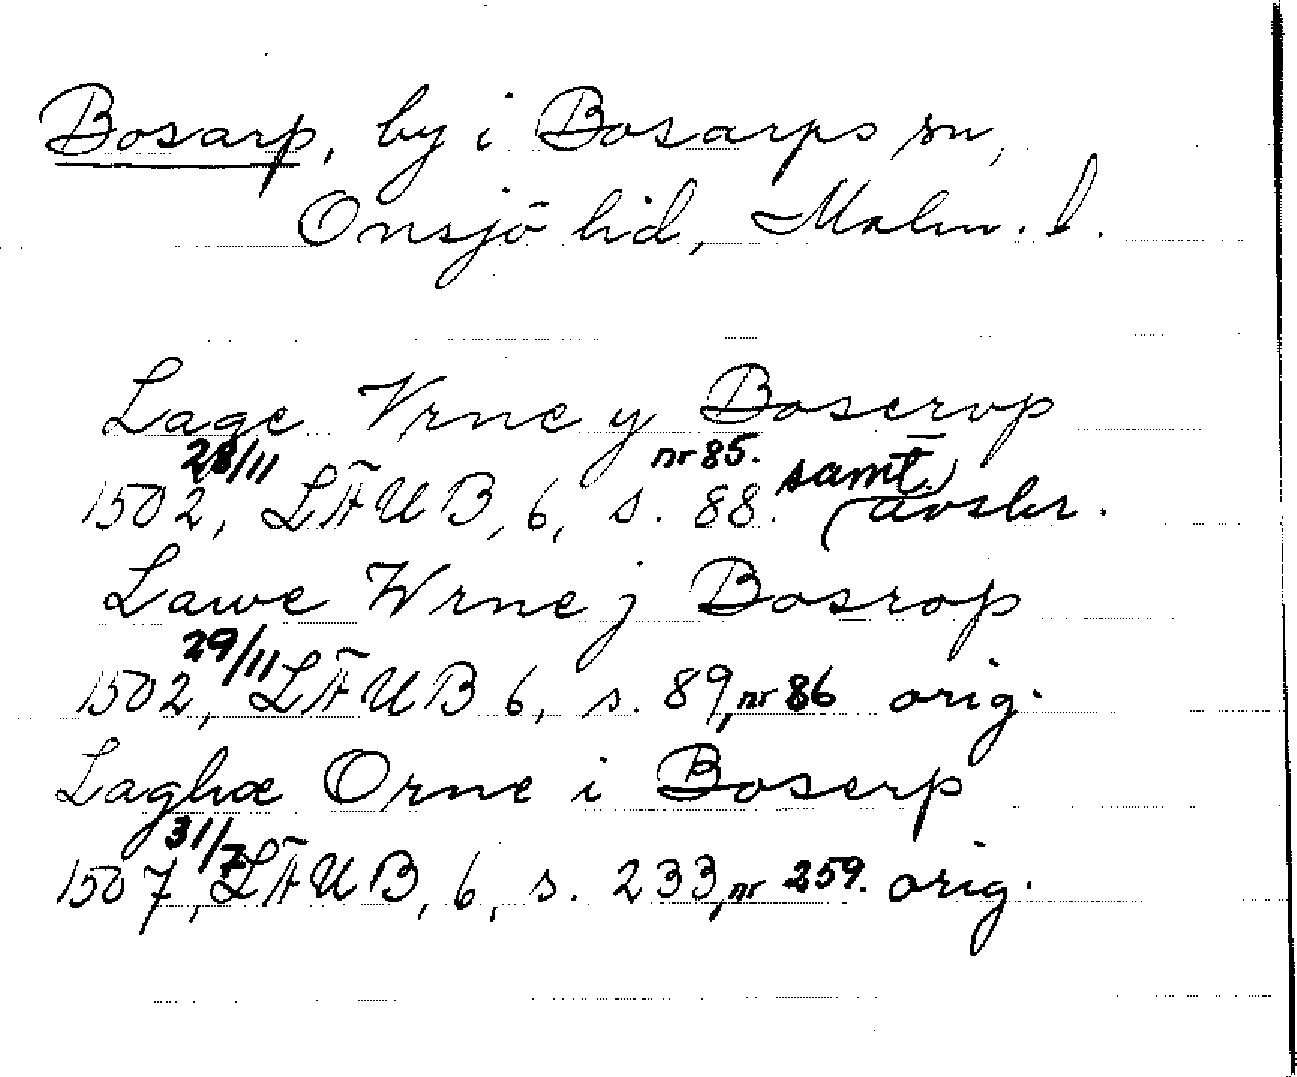 Bosarp, by i Bosarps sn,
Onsjö hd, Malm. l.
Lage Vrne y Boserop
1502 28/11, LÄUB, 6, s. 88. nr 85. samt. (avskr.)
Lawe Wrne j Bosrop
1502 29/11, LÄUB 6, s. 89, nr 86 orig.
Laghæ Orne i Boserp
1507 31/7, LÄUB, 6, s. 233, nr 259. orig.